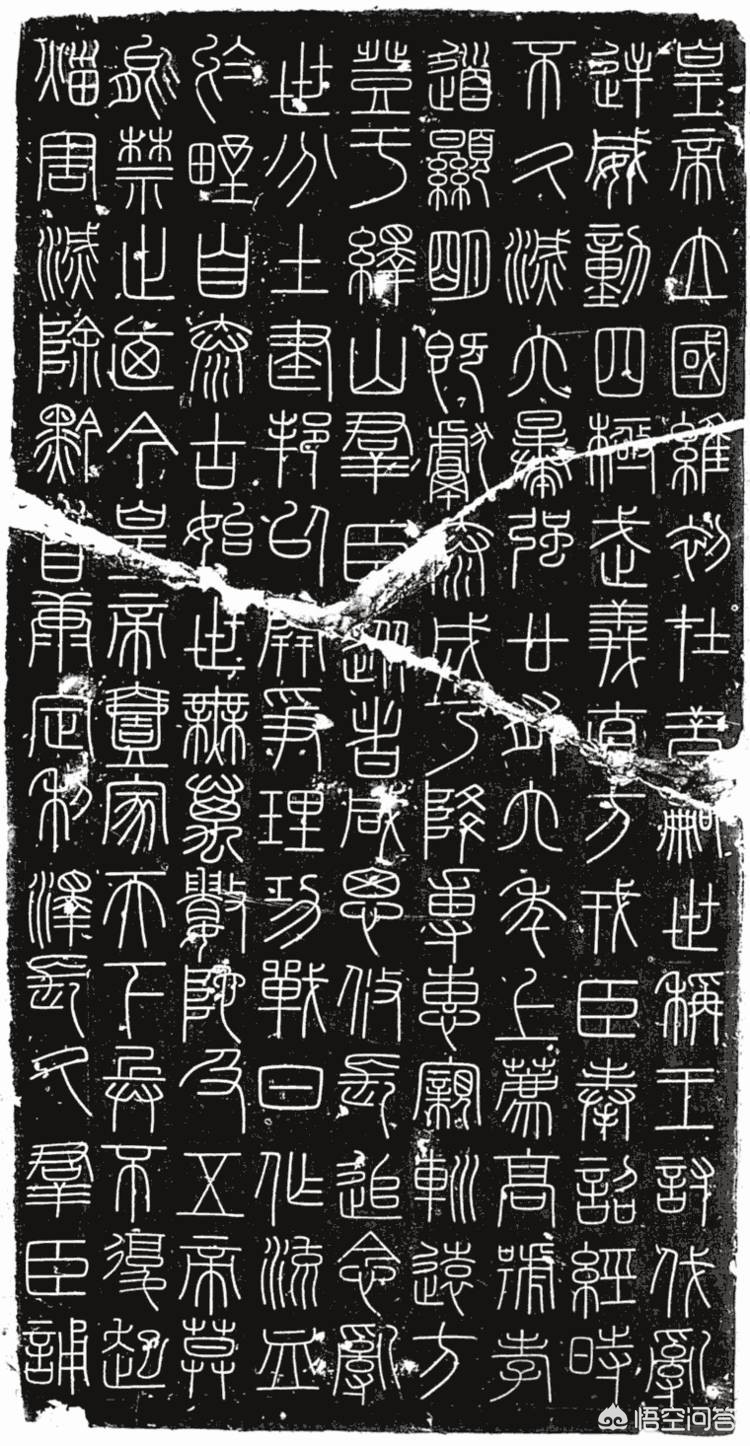 皇帝立國維初在昔嗣世稱王討伐亂
逆威動四極武義直方戎臣奉詔經時
不久滅六暴強廿有六年上薦高號孝
道顯明既獻泰成乃降專惠親巡遠方
登于繹山群臣從者咸思攸長追念亂
世分土建邦以開爭理功戰日作流血
於野自泰古始世無萬數阤及五帝莫
能禁止廼今皇帝壹家天下兵不復起
災害滅除黔首康定利澤長久群臣誦
悟空问答